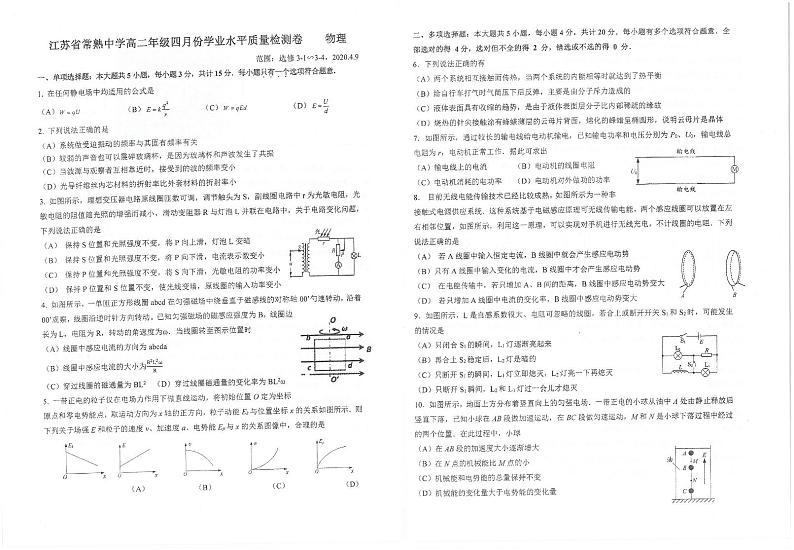 江苏省常熟中学高二年级四月份学业水平质量检测卷 物理
范围：选修 3-1∽3-4，2020.4.9
一、单项选择题：本大题共 5 小题，每小题 3 分，共计 15 分．每小题只有一个选项符合题意．
1. 在任何静电场中均适用的公式是
（A）W=qU （B）E=k （C）W=qEd （D）E=U/d
2. 下列说法正确的是
（A）系统做受迫振动的频率与其固有频率有关
（B）较弱的声音也可以震碎玻璃杯，是因为玻璃杯和声波发生了共振
（C）当波源与观察者互相靠近时，接受到的波的频率变小
（D）光导纤维丝内芯材料的折射率比外套材料的折射率小
3. 如图所示，理想变压器电路原线圈匝数可调，调节触头为 S，副线圈电路中 r 为光敏电阻，光
敏电阻的阻值随光照的增强而减小，滑动变阻器 R 与灯泡 L 并联在电路中，关于电路变化问题，
下列说法正确的是
（A） 保持 S 位置和光照强度不变，将 P 向上滑，灯泡 L 变暗
（B） 保持 S 位置和光照强度不变，将 P 向下滑，电流表示数变小
（C） 保持 P 位置和光照强度不变，将 S 向下滑，光敏电阻的功率变小
（D） 保持 P 位置和 S 位置不变，使光线变暗，原线圈的输入功率变小
r
S
P
R
L
4. 如图所示，一单匝正方形线圈 abcd 在匀强磁场中绕垂直于磁感线的对称轴 OO′匀速转动，沿着
OO′观察，线圈沿逆时针方向转动．已知匀强磁场的磁感应强度为 B，线圈边
长为 L，电阻为 R，转动的角速度为ω．当线圈转至图示位置时
（A）线圈中感应电流的方向为 abcda
（B）线圈中感应电流的大小为
（C）穿过线圈的磁通量为 BL² （D）穿过线圈磁通量的变化率为 BL²ω
O
ω
b
a
B
c
d
O′
5. 一带正电的粒子仅在电场力作用下做直线运动，将初始位置 O 定为坐标
原点和零电势能点，取运动方向为 x 轴的正方向，粒子动能 Ek与位置坐标 x 的关系如图所示．则
下列关于场强 E 和粒子的速度 v、加速度 a、电势能 Ep与 x 的关系图像中，合理的是
（A） （B） （C） （D）
二、多项选择题：本大题共 5 小题，每小题 4 分，共计 20 分．每小题有多个选项符合题意．全
部选对的得 4 分，选对但不全的得 2 分，错选或不选的得 0 分．
6. 下列说法正确的有
（A）两个系统相互接触而传热，当两个系统的内能相等时就达到了热平衡
（B）给自行车打气时气筒压下后反弹，主要是由分子斥力造成的
（C）液体表面具有收缩的趋势，是由于液体表面层分子比内部稀疏的缘故
（D）烧热的针尖接触涂有蜂蜡薄层的云母片背面，熔化的蜂蜡呈椭圆形，说明云母片是晶体
7. 如图所示，通过较长的输电线给电动机输电，已知输电功率和电压分别为 P₀、U₀，输电线总
电阻为 r，电动机正常工作．据此可求出
（A）输电线上的电流 （B）电动机的线圈电阻
（C）电动机消耗的电功率 （D）电动机对外做功的功率
输电线
U₀
M
输电线
8. 目前无线电能传输技术已经比较成熟，如图所示为一种非
接触式电源供应系统．这种系统基于电磁感应原理可无线传输电能，两个感应线圈可以放置在左
右相邻位置，如图所示，利用这一原理，可以实现对手机进行无线充电，不计线圈的电阻．下列
说法正确的是
（A） 若 A 线圈中输入恒定电流，B 线圈中就会产生感应电动势
（B） 只有 A 线圈中输入变化的电流，B 线圈中才会产生感应电动势
（C） 在电能传输中，若只增加 A、B 间的距离，B 线圈中感应电动势变大
（D） 若只增加 A 线圈中电流的变化率，B 线圈中感应电动势变大
A
B
9. 如图所示，L 是自感系数很大、电阻可忽略的线圈，若合上或断开开关 S₁和 S₂时，可能发生
的情况是
（A）只闭合 S₁的瞬间，L₁灯逐渐亮起来
（B）再合上 S₂稳定后，L₂灯是暗的
（C）只断开 S₁的瞬间，L₁灯立即熄灭，L₂灯亮一下再熄灭
（D）只断开 S₂瞬间，L₂和 L₁灯过一会儿才熄灭
10. 如图所示，地面上方分布着竖直向上的匀强电场．一带正电的小球从油中 A 处由静止释放后
竖直下落，已知小球在 AB 段做加速运动，在 BC 段做匀速运动，M 和 N 是小球下落过程中经过
的两个位置．在此过程中，小球
（A）在 AB 段的加速度大小逐渐增大
（B）在 N 点的机械能比 M 点的小
（C）机械能和电势能的总量保持不变
（D）机械能的变化量大于电势能的变化量
油
A
M
B
N
C
E